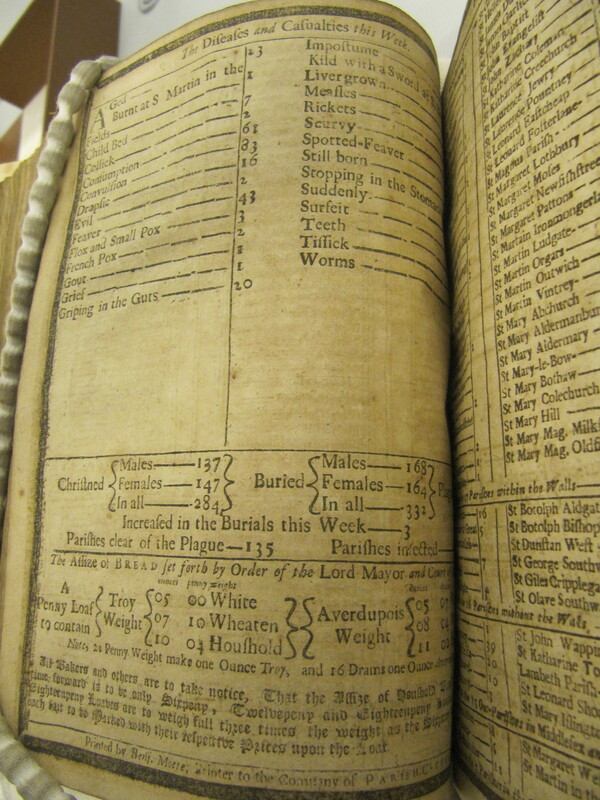 The Diseases and Casualties this Week.
AGed 23
Burnt at S Martin in the
Fields 1
Child Bed 7
Collick 2
Consumption 61
Convulsion 83
Dropsie 16
Evil 2
Feaver 43
Flox and Small Pox 3
French Pox 2
Gout 1
Grief 1
Griping in the Guts 20
Impostume
Kild with a Sword
Livergrown
Measles
Rickets
Scurvy
Spotted-Feaver
Still born
Stopping in the Stomach
Suddenly
Surfeit
Teeth
Tissick
Worms
Christned Males 137
Females 147
In all 284
Buried Males 168
Females 164
In all 332
Increased in the Burials this Week 3
Parishes clear of the Plague 135 Parishes infected
The Assize of BREAD set forth by Order of the Lord Mayor and Court
A Penny Loaf to contain
Troy Weight
ounces penny weight
05 00 White
07 10 Wheaten
10 04 Houshold
Averdupois Weight
05
08
11
Note, 20 Penny Weight make one Ounce Troy, and 16 Drams one Ounce
All Bakers and others are to take notice, That the Assize of Houshold
forward is to be only Sixpeny, Twelvepeny and Eighteenpeny
Eighteenpeny Loaves are to weigh full three times the weight as the
each last to be Marked with their respective Prices upon the Loaf.
Printed by Benj. Motte, Printer to the Company of
St John Zachary
St Katharine Coleman
St Katharine Creechurch
St Laurence Jewry
St Laurence Pountney
St Leonard Eastcheap
St Leonard Fosterlane
St Magnus Parish
St Margaret Lothbury
St Margaret Moses
St Margaret Newfishstreet
St Margaret Pattons
St Martin Ironmongerlane
St Martin Ludgate
St Martin Orgars
St Martin Outwich
St Martin Vintrey
St Mary Abchurch
St Mary Aldermanbury
St Mary Aldermary
St Mary-le-Bow
St Mary Bothaw
St Mary Colechurch
St Mary Hill
St Mary Mag. Milk
St Mary Mag. Oldf
Parishes within the Walls
St Botolph Aldgate
St Botolph Bishop
St Dunstan West
St George Southw
St Giles Cripplega
St Olave Southw
Parishes without the Walls
St John Wapping
St Katharine To
Lambeth Parish
St Leonard Shor
St Mary Islington
Parishes in Middlesex and
St Margaret We
St Martin in the